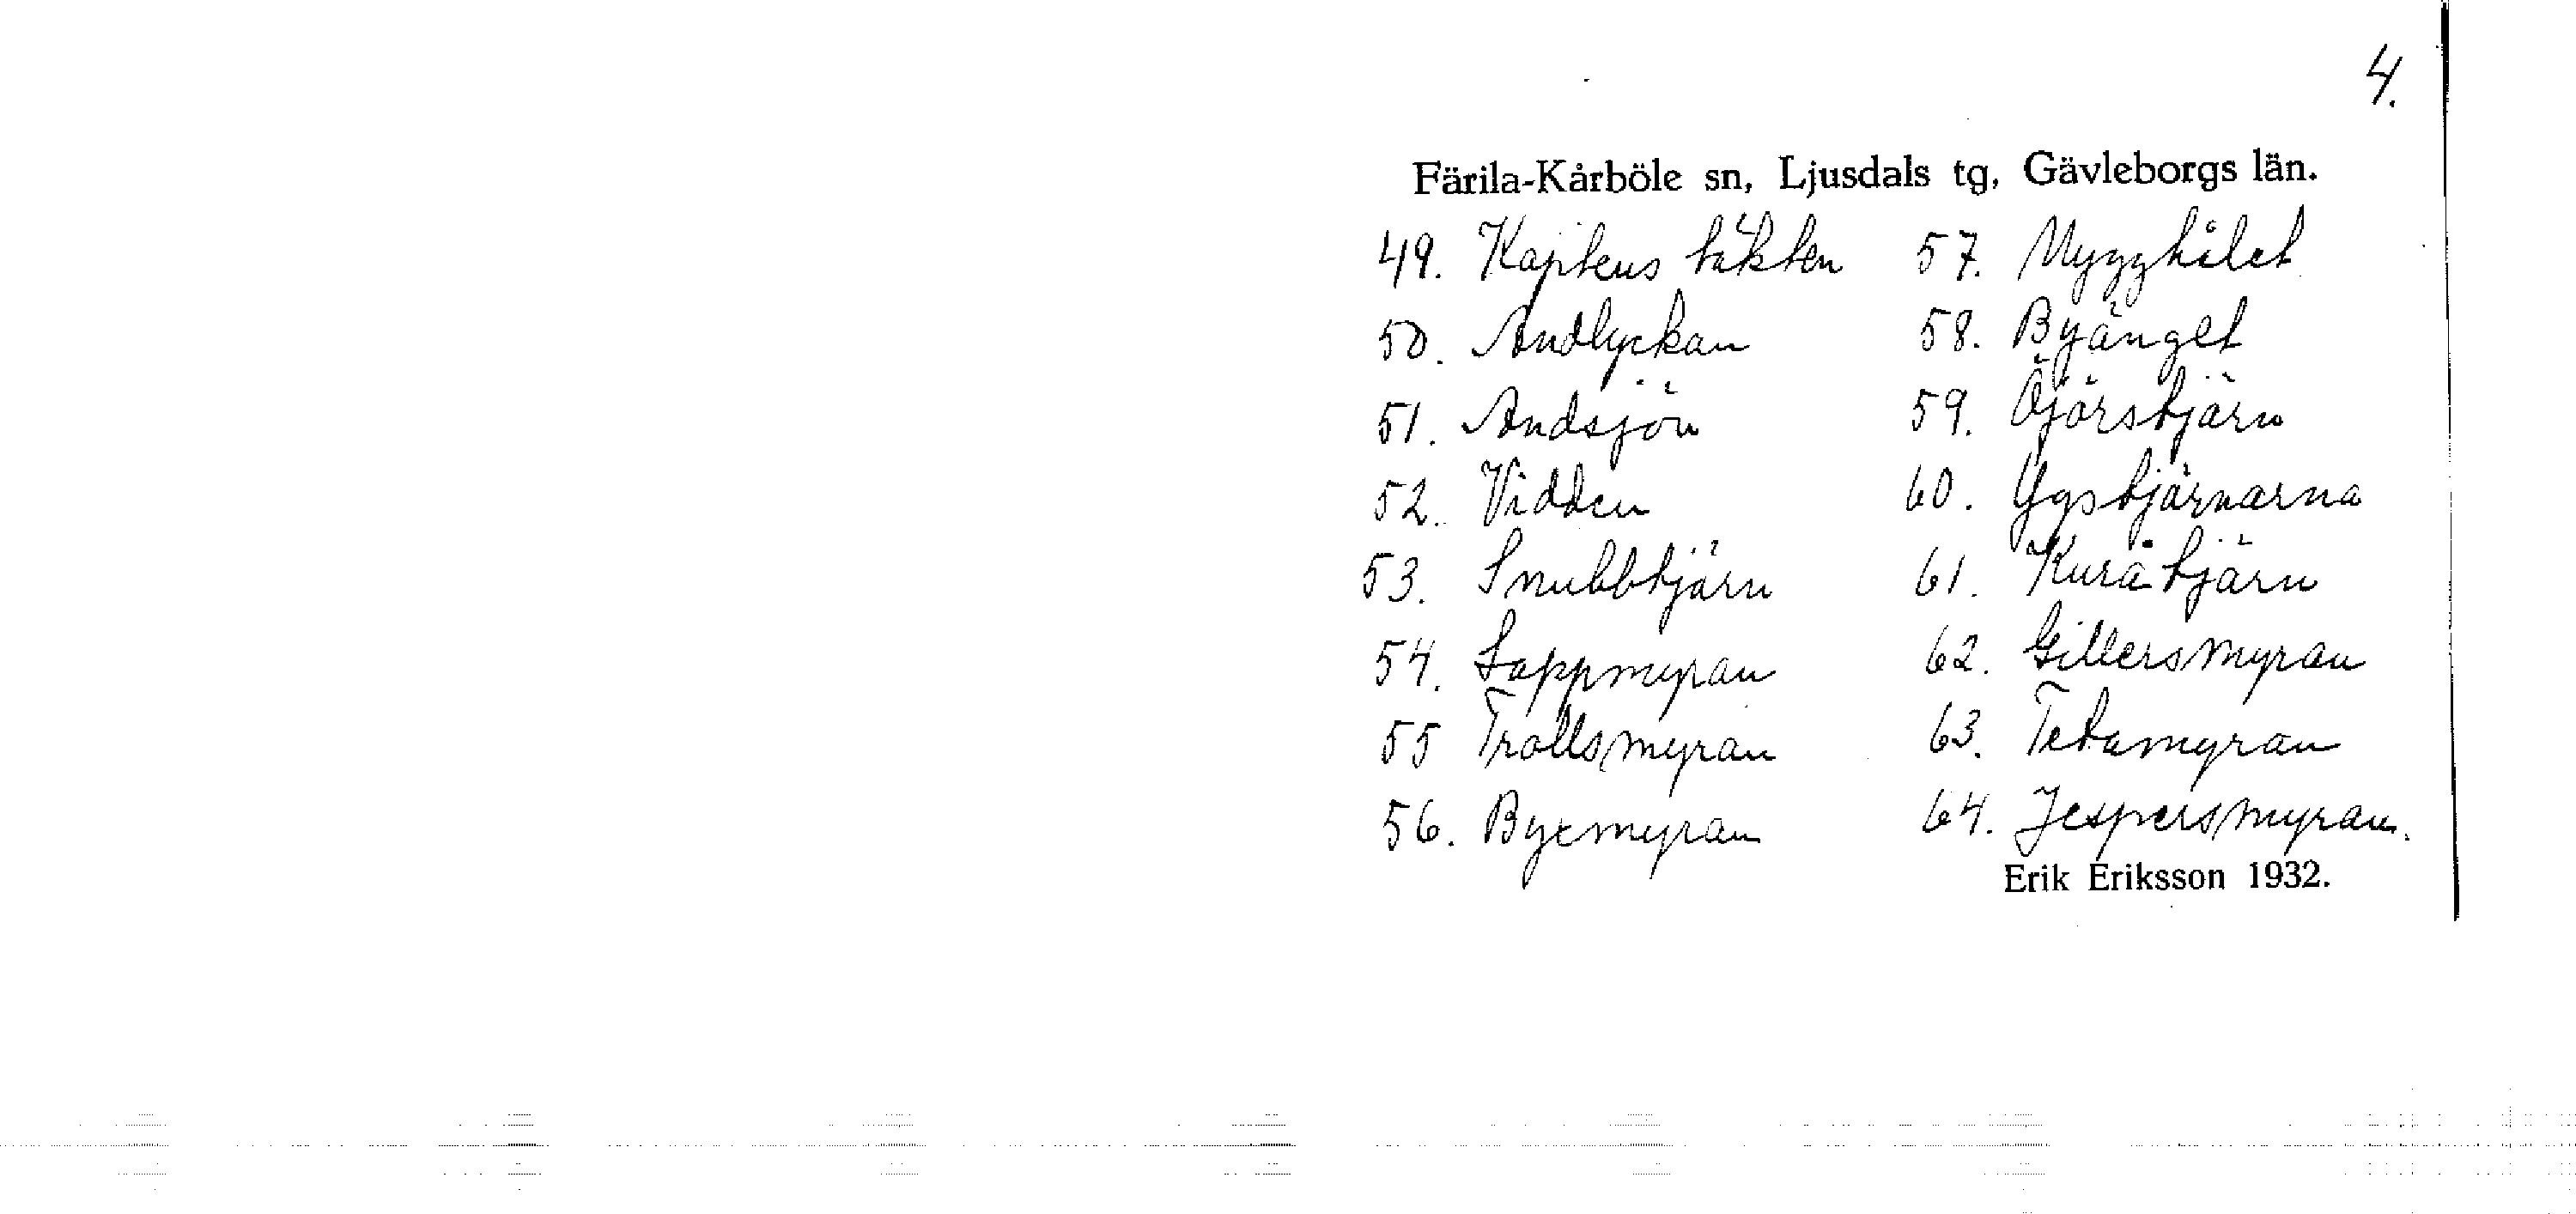 4.
Färila-Kårböle sn, Ljusdals tg, Gävleborgs län.
49. Kaptens täkten
50. Andlyckan
51. Andsjön
52. Vidden
53. Snubbtjärn
54. Lappmyran
55 Trollsmyran
56. Byemyran
57. Mygghålet
58. Byänget
59. Öjörstjärn
60. Ygstjärnarna
61. Kuråtjärn
62. Gillersmyran
63. Tetamyran
64. Jespersmyran.
Erik Eriksson 1932.